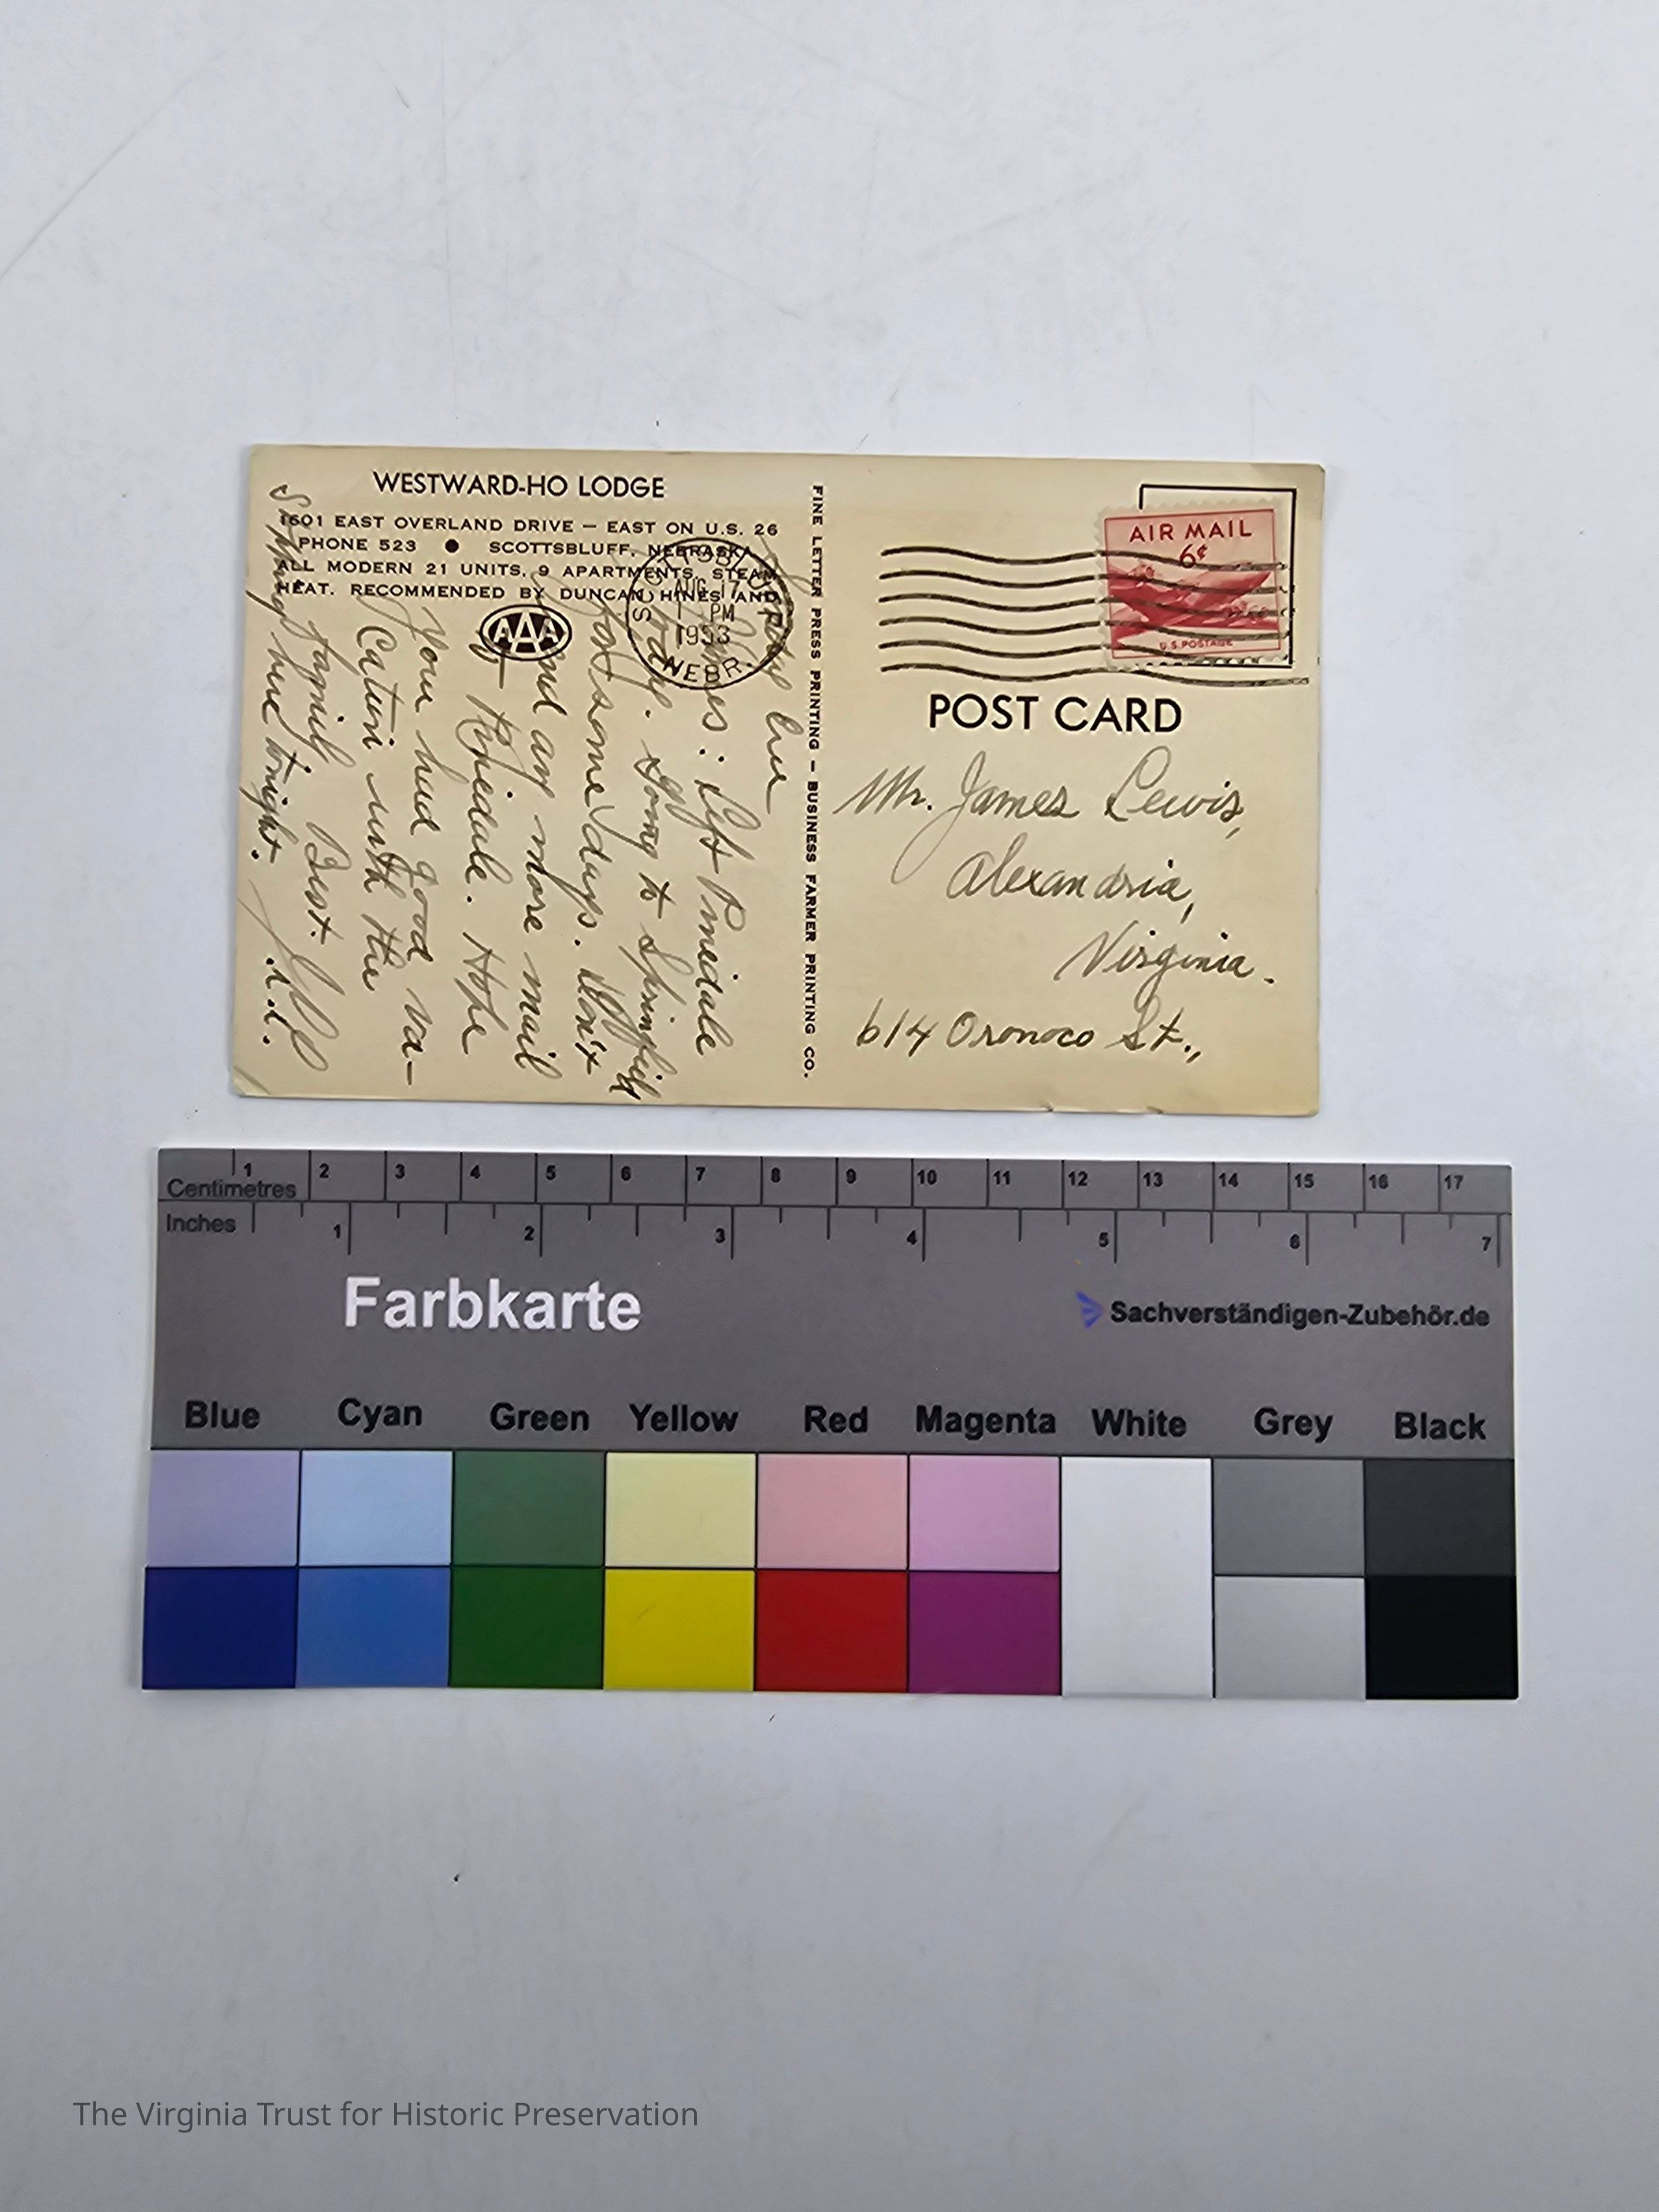 WESTWARD-HO LODGE
1601 EAST OVERLAND DRIVE — EAST ON U.S. 26
PHONE 523 ● SCOTTSBLUFF, NEBRASKA
ALL MODERN 21 UNITS, 9 APARTMENTS, STEAM
HEAT. RECOMMENDED BY DUNCAN HINES AND
AAA
SCOTTSBLUFF
AUG 17
1 PM
1953
NEBR.
Sunday Eve
James: Left Pinedale
today. Going to Springfield
for some days. Don't
send any more mail
to Pinedale. Hope
you had good va-
cation with the
family. Best.
Stopping here tonight.
FINE LETTER PRESS PRINTING — BUSINESS FARMER PRINTING CO.
AIR MAIL
6¢
U.S. POSTAGE
POST CARD
Mr. James Lewis,
Alexandria,
Virginia.
614 Oronoco St.,
Centimetres 1 2 3 4 5 6 7 8 9 10 11 12 13 14 15 16 17
Inches 1 2 3 4 5 6 7
Farbkarte
Sachverständigen-Zubehör.de
Blue Cyan Green Yellow Red Magenta White Grey Black
The Virginia Trust for Historic Preservation